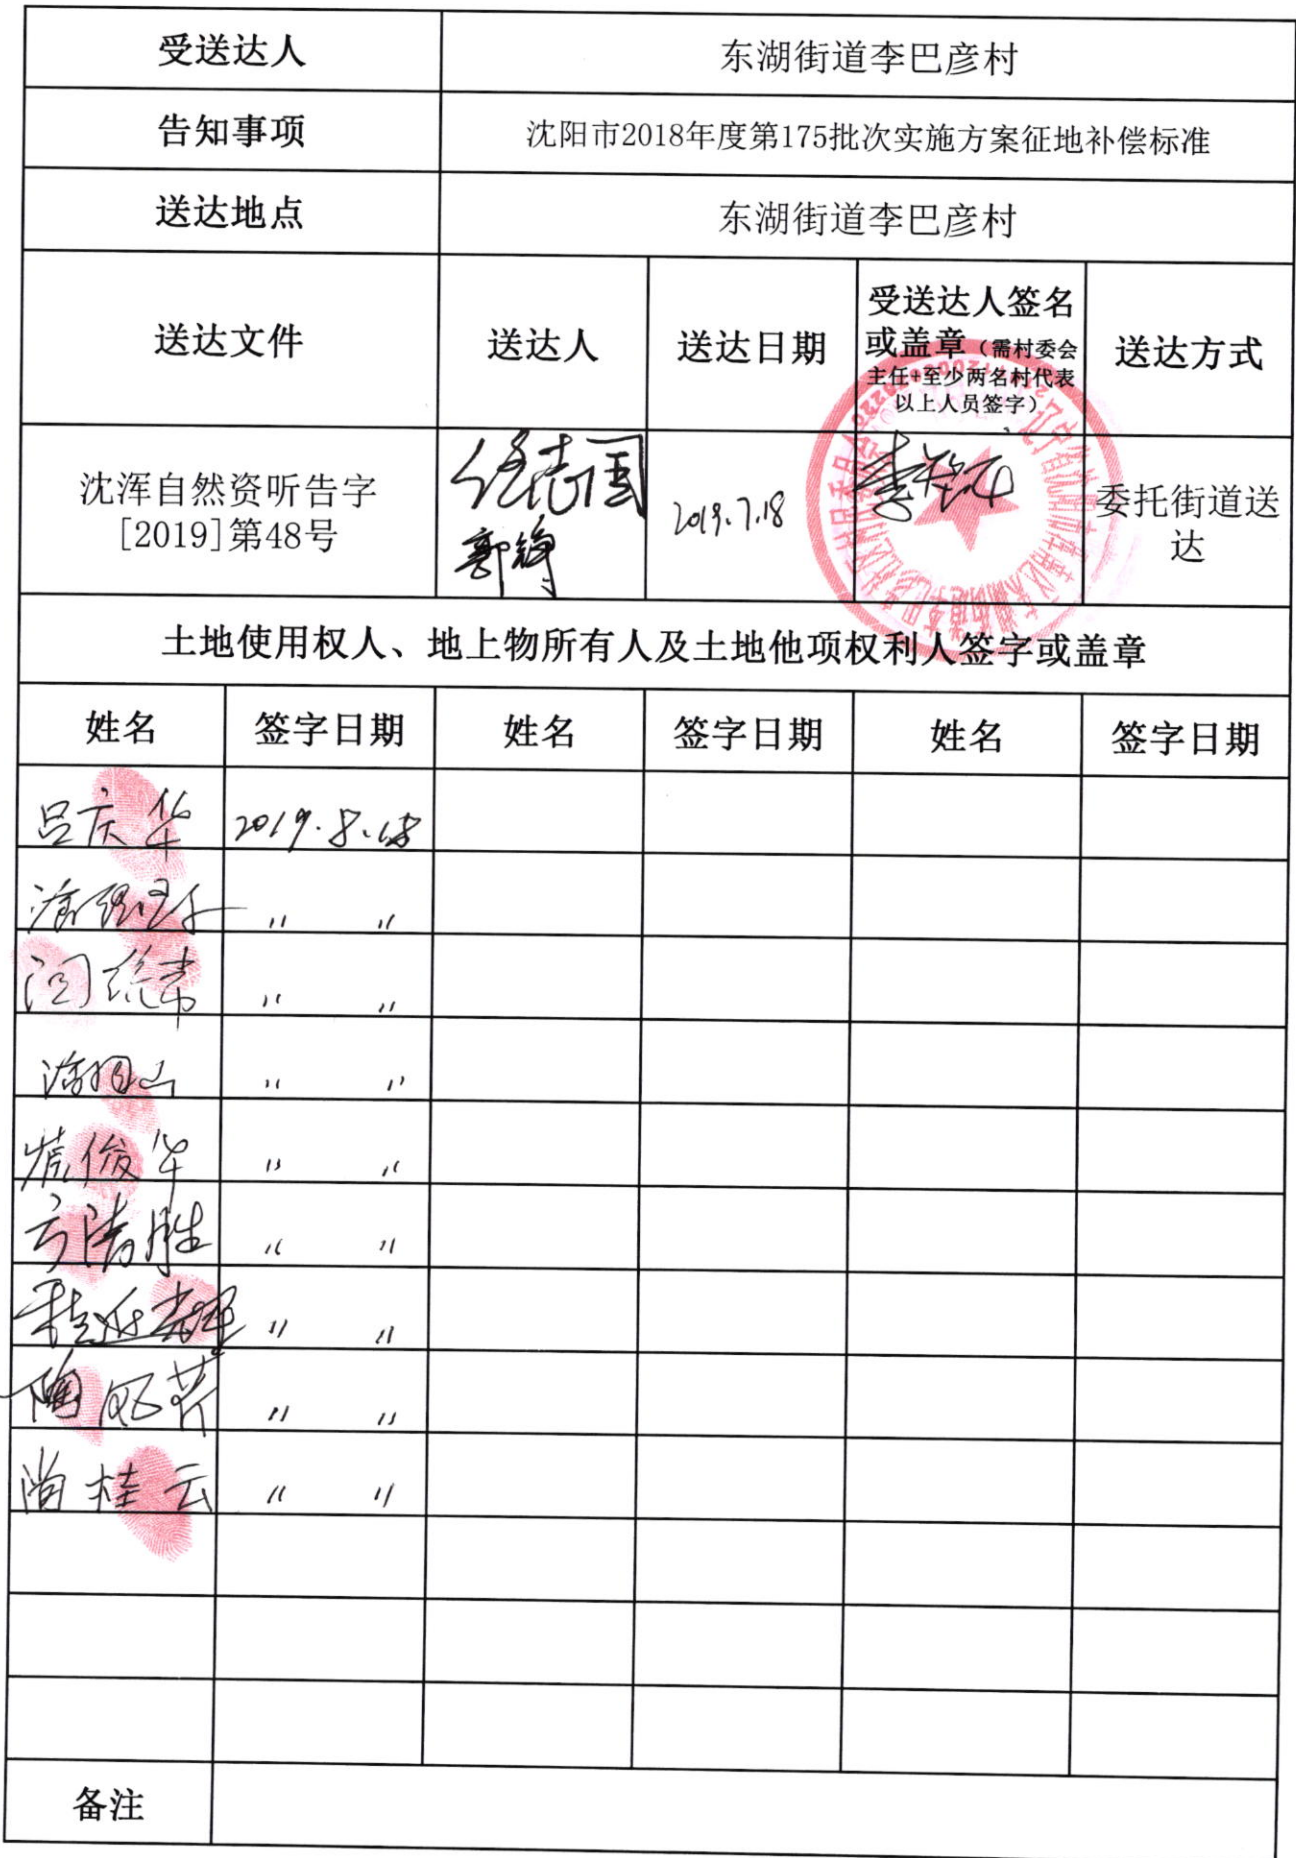 受送达人 东湖街道李巴彦村
告知事项 沈阳市2018年度第175批次实施方案征地补偿标准
送达地点 东湖街道李巴彦村
送达文件 送达人 送达日期 受送达人签名
或盖章（需村委会
主任+至少两名村代表
以上人员签字） 送达方式
沈浑自然资听告字
[2019]第48号
任志国
郭锋
2019.7.18
委托街道送
达
土地使用权人、地上物所有人及土地他项权利人签字或盖章
姓名 签字日期 姓名 签字日期 姓名 签字日期
吕庆华 2019.8.15
〃 〃
〃 〃
〃 〃
〃 〃
〃 〃
〃 〃
〃 〃
尚桂云 〃 〃
备注